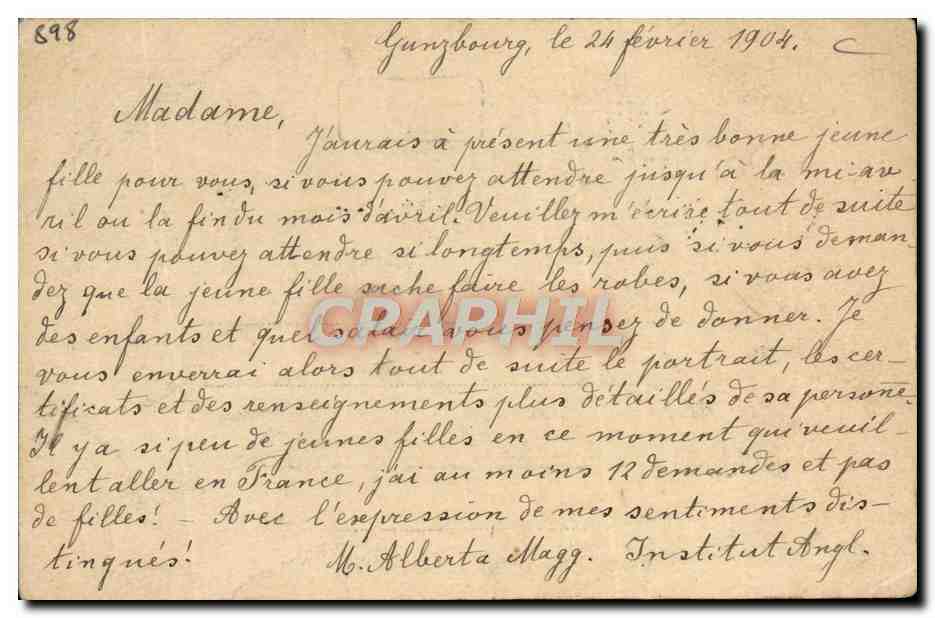 898
Gunzbourg, le 24 février 1904.
Madame,
J'aurais à présent une très bonne jeune
fille pour vous, si vous pouvez attendre jusqu'à la mi-av
ril ou la fin du mois d'avril. Veuillez m'écrire tout de suite
si vous pouvez attendre si longtemps, puis si vous deman-
dez que la jeune fille sache faire les robes, si vous avez
des enfants et quel salair vous pensez de donner. Je
CRAPHIL
vous enverrai alors tout de suite le portrait, les cer-
tificats et des renseignements plus détaillés de sa persone.
Il y a si peu de jeunes filles en ce moment qui veuil-
lent aller en France, j'ai au moins 12 demandes et pas
de filles! - Avec l'expression de mes sentiments dis-
tingués!
M. Alberta Magg. Institut Angl.